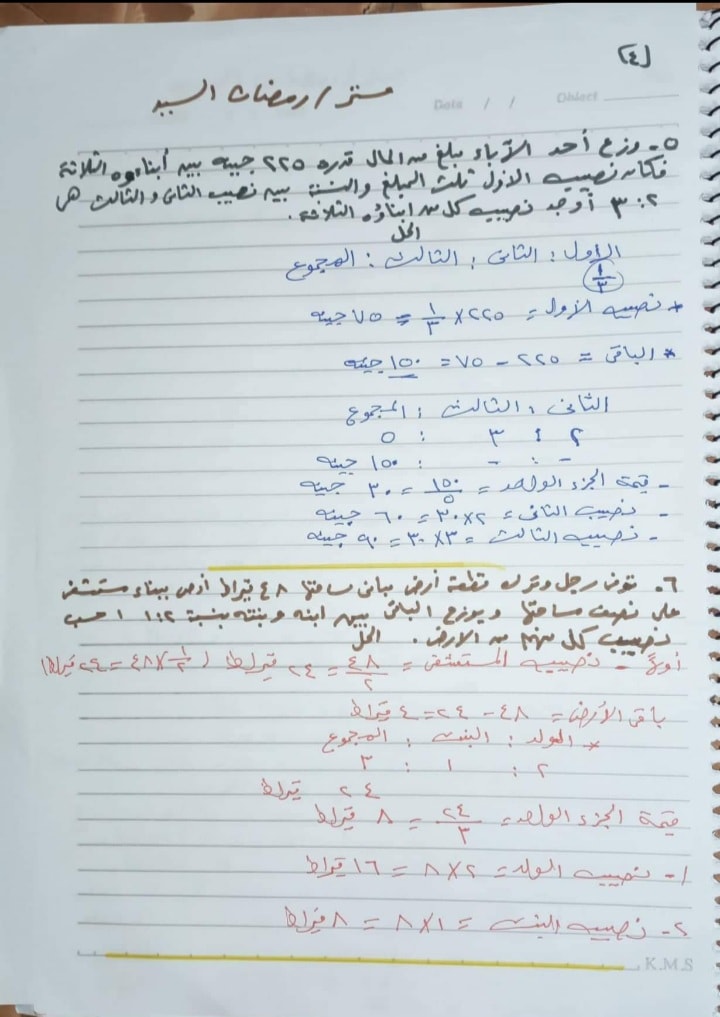 (٤)
مستر / رمضان السيد
Date / / Object
٥- وزع أحد الآباء مبلغ من المال قدره ٢٢٥ جنيه بين أبناءه الثلاثة
فكان نصيب الأول ثلث المبلغ والنسبة بين نصيب الثاني والثالث هي
٢ : ٣ أوجد نصيب كل من ابناؤه الثلاثة.
الحل
الأول : الثاني : الثالث : المجموع
١/٣
* نصيب الأول = ٢٢٥ × ١/٣ = ٧٥ جنيه
* الباقي = ٢٢٥ - ٧٥ = ١٥٠ جنيه
الثاني : الثالث : المجموع
٢ : ٣ : ٥
- : - : ١٥٠ جنيه
- قيمة الجزء الواحد = ١٥٠/٥ = ٣٠ جنيه
- نصيب الثاني = ٢ × ٣٠ = ٦٠ جنيه
- نصيب الثالث = ٣ × ٣٠ = ٩٠ جنيه
٦- توفى رجل وترك قطعة أرض مباني مساحتها ٤٨ قيراط أوصى ببناء مستشفى
على نصف مساحتها ويوزع الباقي بين ابنه وبنته بنسبة ٢ : ١ احسب
نصيب كل منهم من الارض. الحل
أولاً - نصيب المستشفى = ٤٨/٢ = ٢٤ قيراط (١/٢ × ٤٨ = ٢٤ قيراط)
باقي الأرض = ٤٨ - ٢٤ = ٢٤ قيراط
* الولد : البنت : المجموع
٢ : ١ : ٣
٢٤ قيراط
قيمة الجزء الواحد = ٢٤/٣ = ٨ قيراط
١- نصيب الولد = ٢ × ٨ = ١٦ قيراط
٢- نصيب البنت = ١ × ٨ = ٨ قيراط
K.M.S